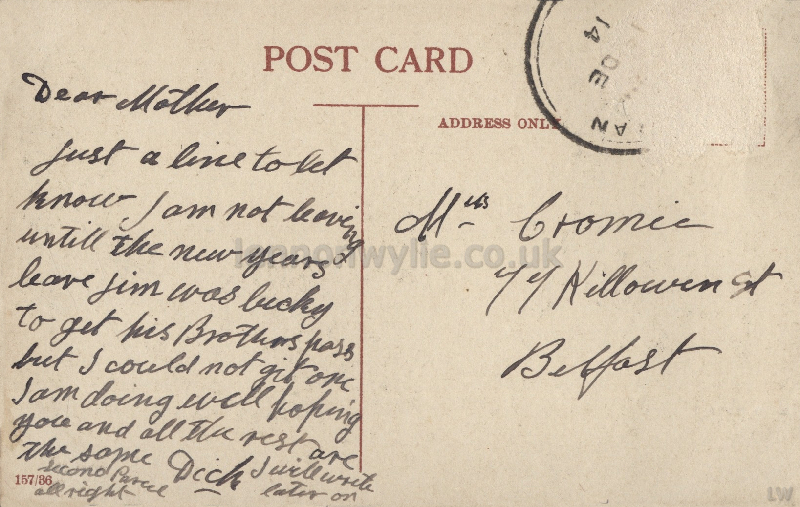 POST CARD
ADDRESS ONLY
14 DE
AN
Dear Mother
Just a line to let
know I am not leaving
untill the new years
leave Jim was lucky
to get his Brothers pass
but I could not git one
I am doing well hoping
you and all the rest are
the same Dick I will write
later on
second Parcel
all right
157/36
Mrs Cromie
77 Killowen St
Belfast
lennonwylie.co.uk
LW